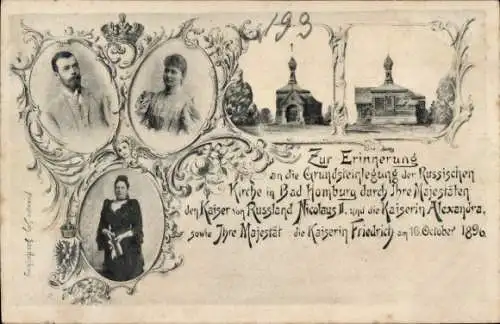 193
Zur Erinnerung
an die Grundsteinlegung der Russischen
Kirche in Bad Homburg durch Ihre Majestäten
den Kaiser von Russland Nicolaus II. und die Kaiserin Alexandra,
sowie Ihre Majestät die Kaiserin Friedrich am 16. October 1896.